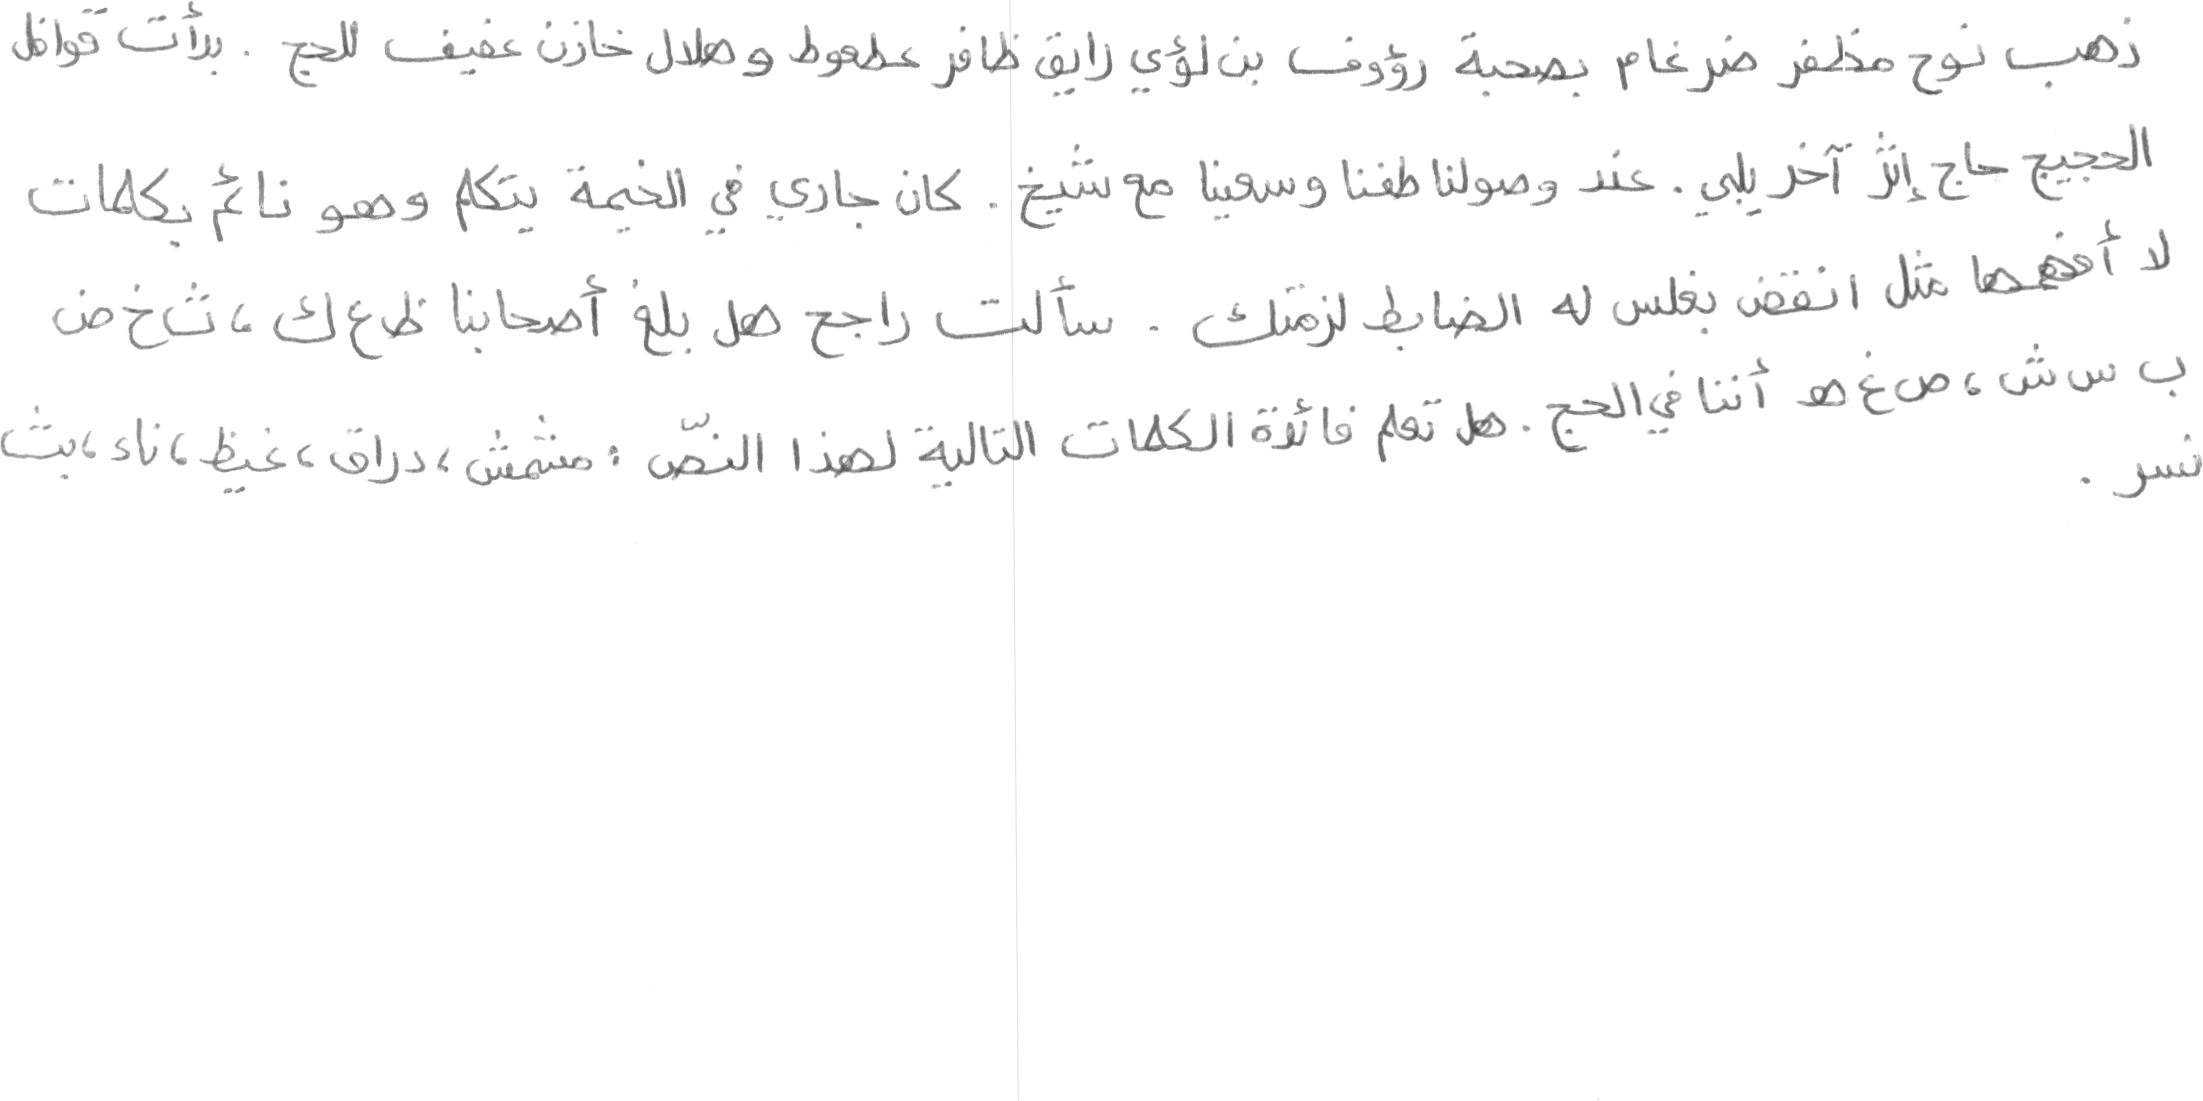 ذهب نوح مظفر ضرغام بصحبة رؤوف بن لؤي رايق ظافر عطعوط و هلال خازن عفيف للحج . بدأت قوافل
الحجيج حاج إثر آخر يلبي . عند وصولنا طفنا وسعينا مع شيخ . كان جاري في الخيمة يتكلم وهو نائم بكلمات
لا أفهمها مثل انقض بغلس له الضابط لزمتك . سألت راجح هل بلغ أصحابنا ظ ع ك ، ث خ ض
ب س ش ، ص غ هـ أننا في الحج . هل تعلم فائدة الكلمات التالية لهذا النصّ : مشمش ، دراق ، غيظ ، ناء ، بث
نسر .